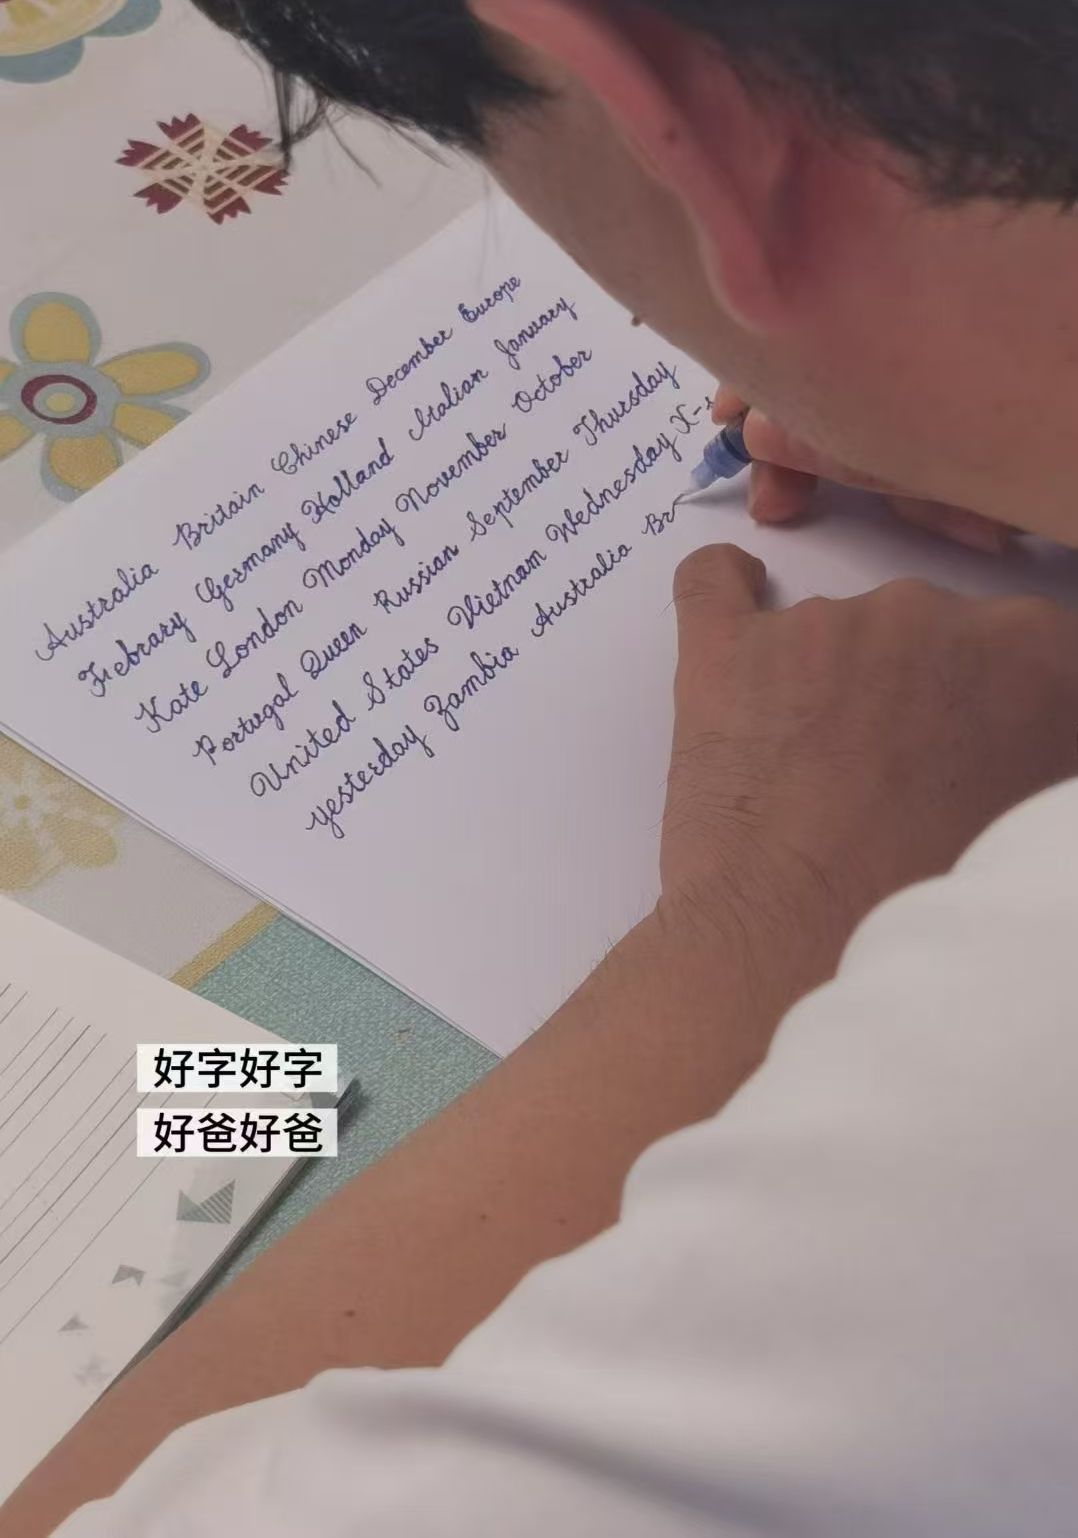 Australia Britain Chinese December Europe
Frebrary Germany Holland Italian January
Kate London Monday November October
Portugal Queen Russian September Thursday
United States Vietnam Wednesday X-
yesterday Zambia Australia Br
好字好字
好爸好爸